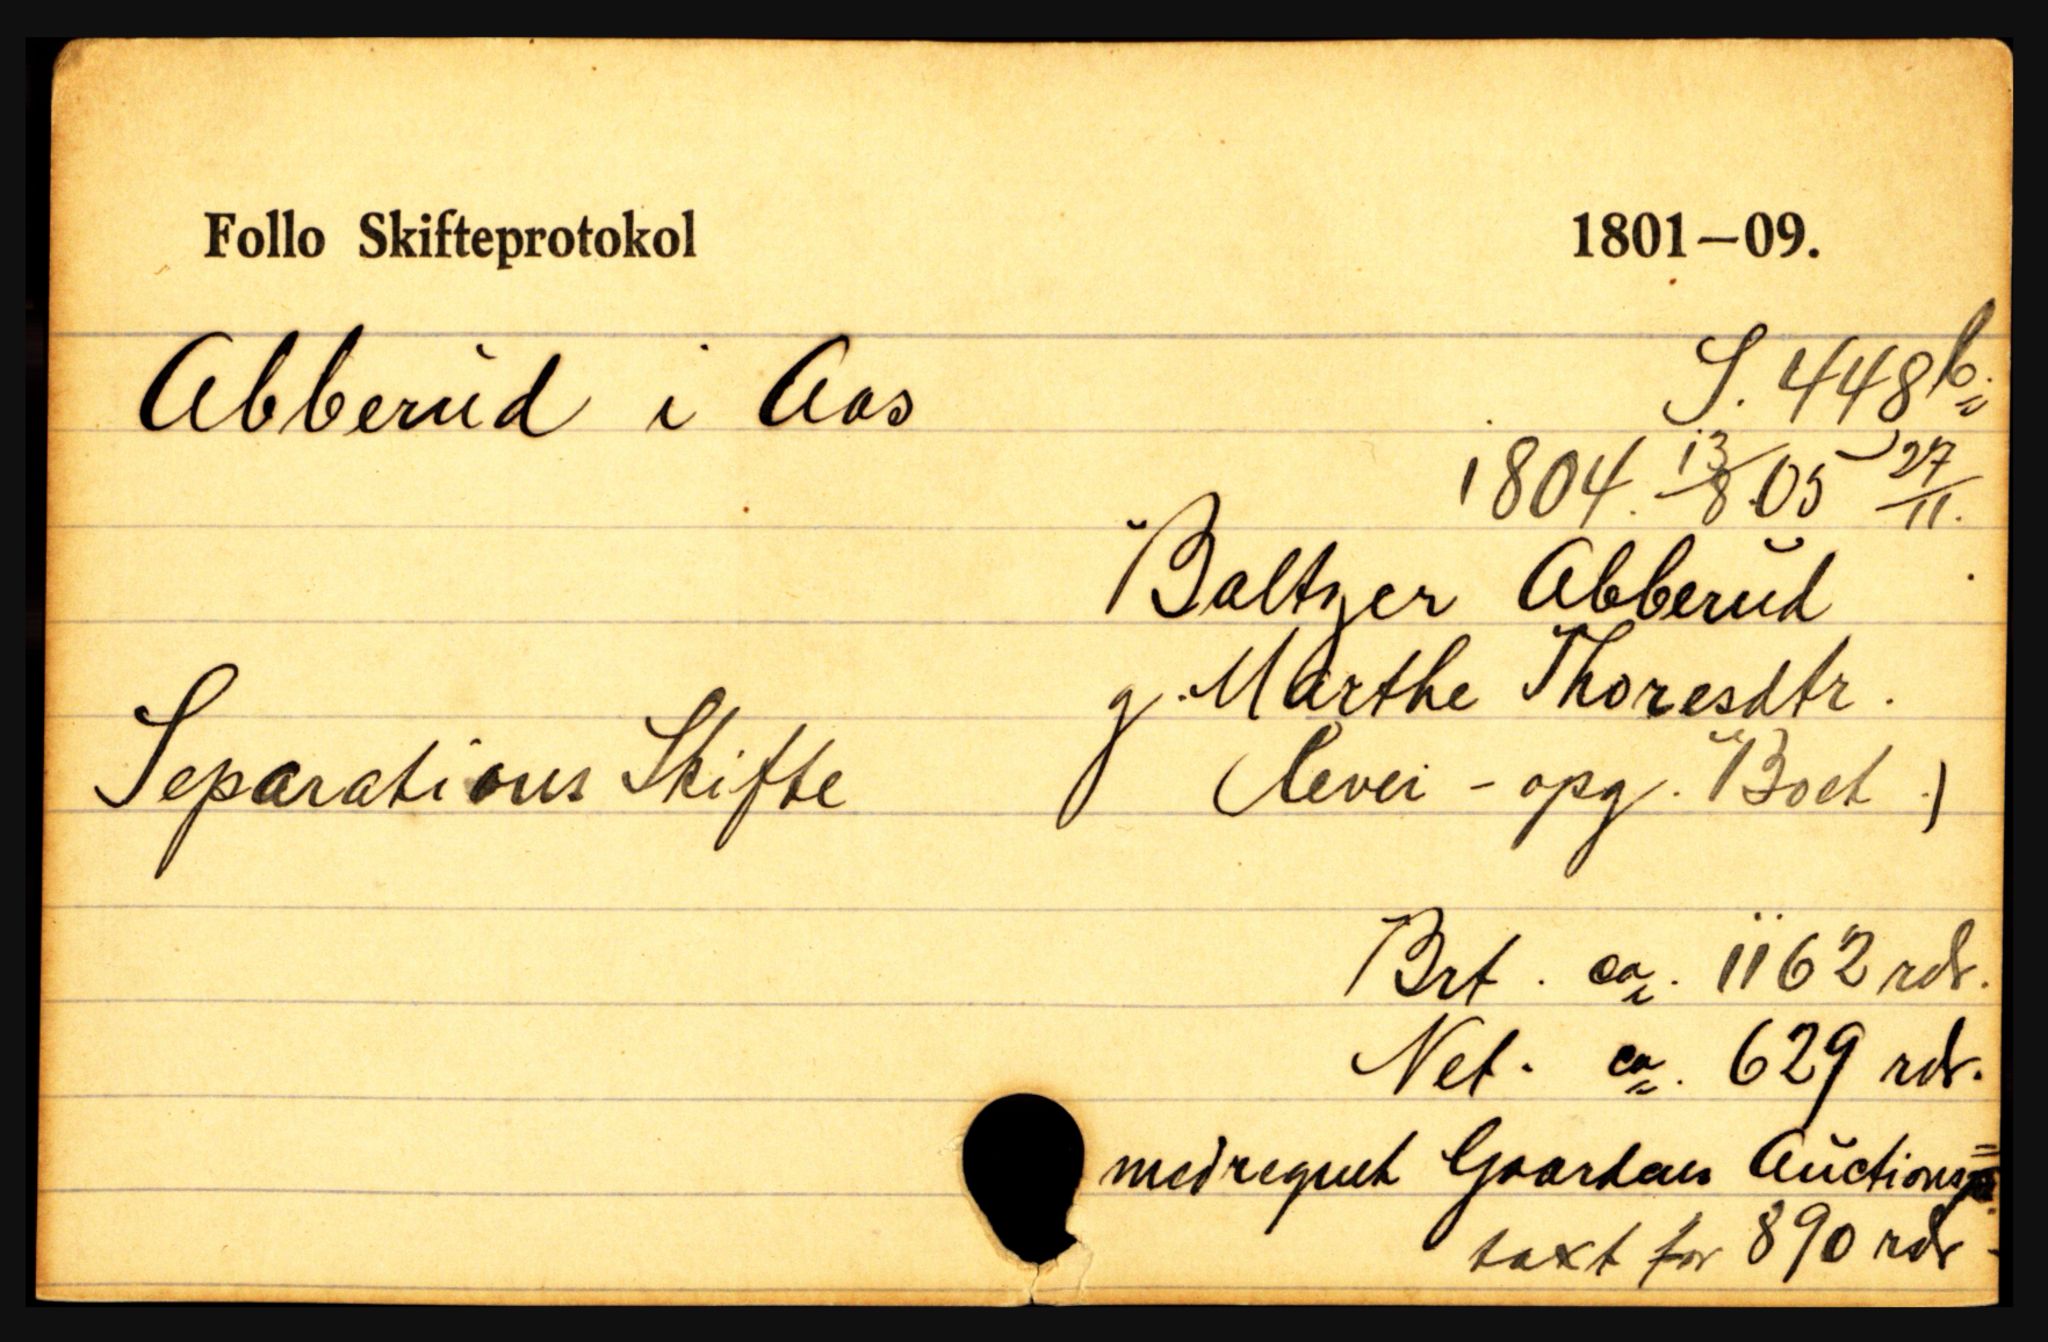 Follo Skifteprotokol 1801—09.
Abberud i Aas S. 448 b.
1804. 13/8 05 27/11.
Baltzer Abberud
g. Marthe Thoresdtr.
Separations Skifte (levei - opg. Boet.)
Brt. ca. 1162 rdr.
Net. ca. 629 rdr.
medregnet Gaardens Auctions=
taxt for 890 rdr.